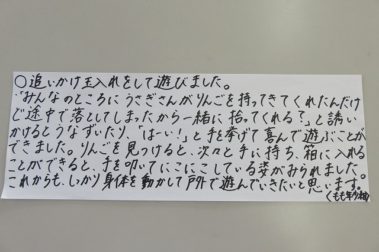 ○追いかけ玉入れをして遊びました。
「みんなのところにうさぎさんがりんごを持ってきてくれたんだけ
ど途中で落としてしまったから一緒に拾ってくれる？」と誘い
かけるとうなずいたり、「はーい！」と手を挙げて喜んで遊ぶことが
できました。りんごを見つけると、次々と手に持ち、箱に入れる
ことができると、手を叩いてにこにこしている姿がみられました。
これからも、しっかり身体を動かして戸外で遊んでいきたいと思います。
(もも年少組)